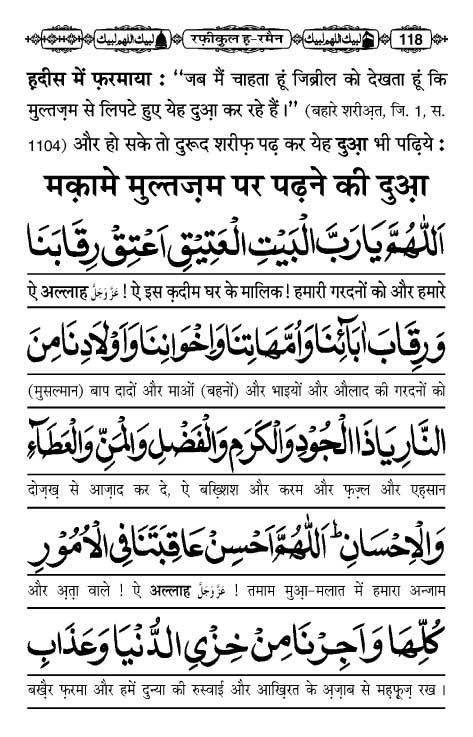 لبیك اللھم لبیك रफ़ीकुल ह-रमैन لبیك اللھم لبیك 118
ह़दीस में फ़रमाया : “जब मैं चाहता हूं जिब्रील को देखता हूं कि
मुल्तज़म से लिपटे हुए येह दुआ़ कर रहे हैं।” (बहारे शरीअ़त, जि. 1, स.
1104) और हो सके तो दुरूद शरीफ़ पढ़ कर येह दुआ़ भी पढ़िये :
मक़ामे मुल्तज़म पर पढ़ने की दुआ़
اَللّٰهُمَّ يَا رَبَّ الْبَيْتِ الْعَتِيْقِ اَعْتِقْ رِقَابَنَا
ऐ अल्लाह عَزَّوَجَلَّ ! ऐ इस क़दीम घर के मालिक ! हमारी गरदनों को और हमारे
وَرِقَابَ اٰبَآئِنَا وَاُمَّهَاتِنَا وَاِخْوَانِنَا وَاَوْلَادِنَا مِنَ
(मुसल्मान) बाप दादों और माओं (बहनों) और भाइयों और औलाद की गरदनों को
النَّارِ يَاذَا الْجُوْدِ وَالْكَرَمِ وَالْفَضْلِ وَالْمَنِّ وَالْعَطَآءِ
दोज़ख़ से आज़ाद कर दे, ऐ बख़्शिश और करम और फ़ज़्ल और एह़सान
وَالْاِحْسَانِ ؕ اَللّٰهُمَّ اَحْسِنْ عَاقِبَتَنَا فِى الْاُمُوْرِ
और अ़त़ा वाले ! ऐ अल्लाह عَزَّوَجَلَّ ! तमाम मुआ़-मलात में हमारा अन्जाम
كُلِّهَا وَاَجِرْنَا مِنْ خِزْىِ الدُّنْيَا وَعَذَابِ
बख़ैर फ़रमा और हमें दुन्या की रुस्वाई और आख़िरत के अ़ज़ाब से मह़फ़ूज़ रख ।